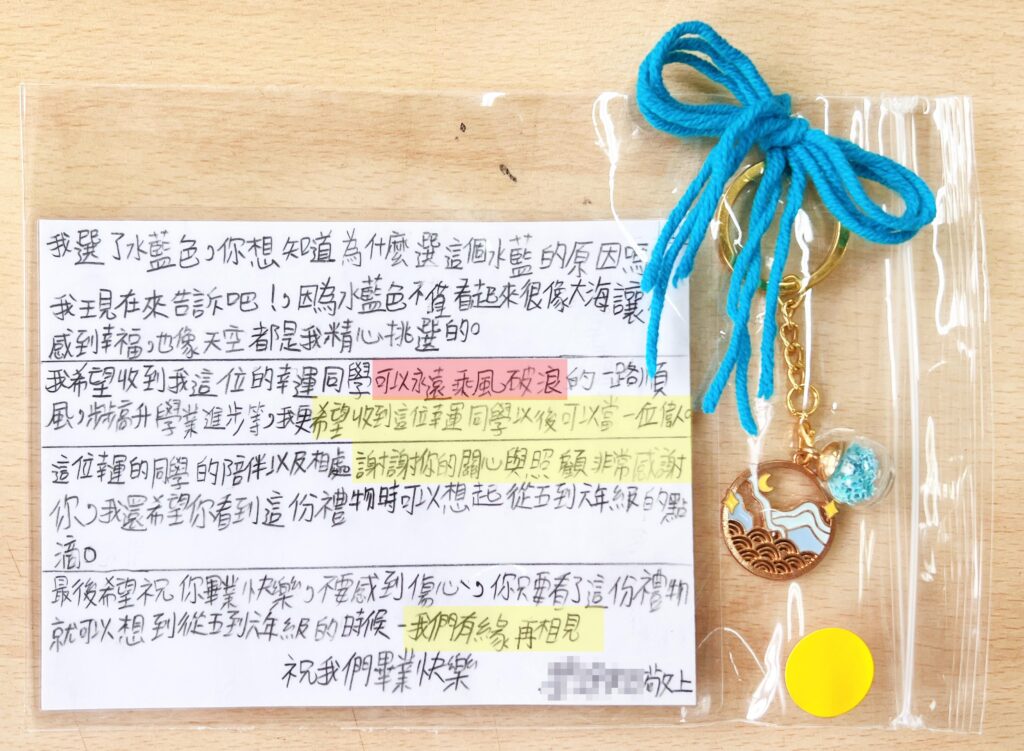 我選了水藍色，你想知道為什麼選這個水藍的原因嗎
我現在來告訴吧！，因為水藍色不僅看起來很像大海讓
感到幸福，也像天空都是我精心挑選的。
我希望收到我這位的幸運同學可以永遠乘風破浪的一路順
風，步步高升學業進步等，我更希望收到這位幸運同學以後可以當一位偉人。
這位幸運的同學的陪伴以及相處謝謝你的關心與照顧非常感謝
你，我還希望你看到這份禮物時可以想起從五到六年級的點
滴。
最後希望祝你畢業快樂，不要感到傷心、，你只要看了這份禮物
就可以想到從五到六年級的時候，我們有緣再相見
祝我們畢業快樂
敬上